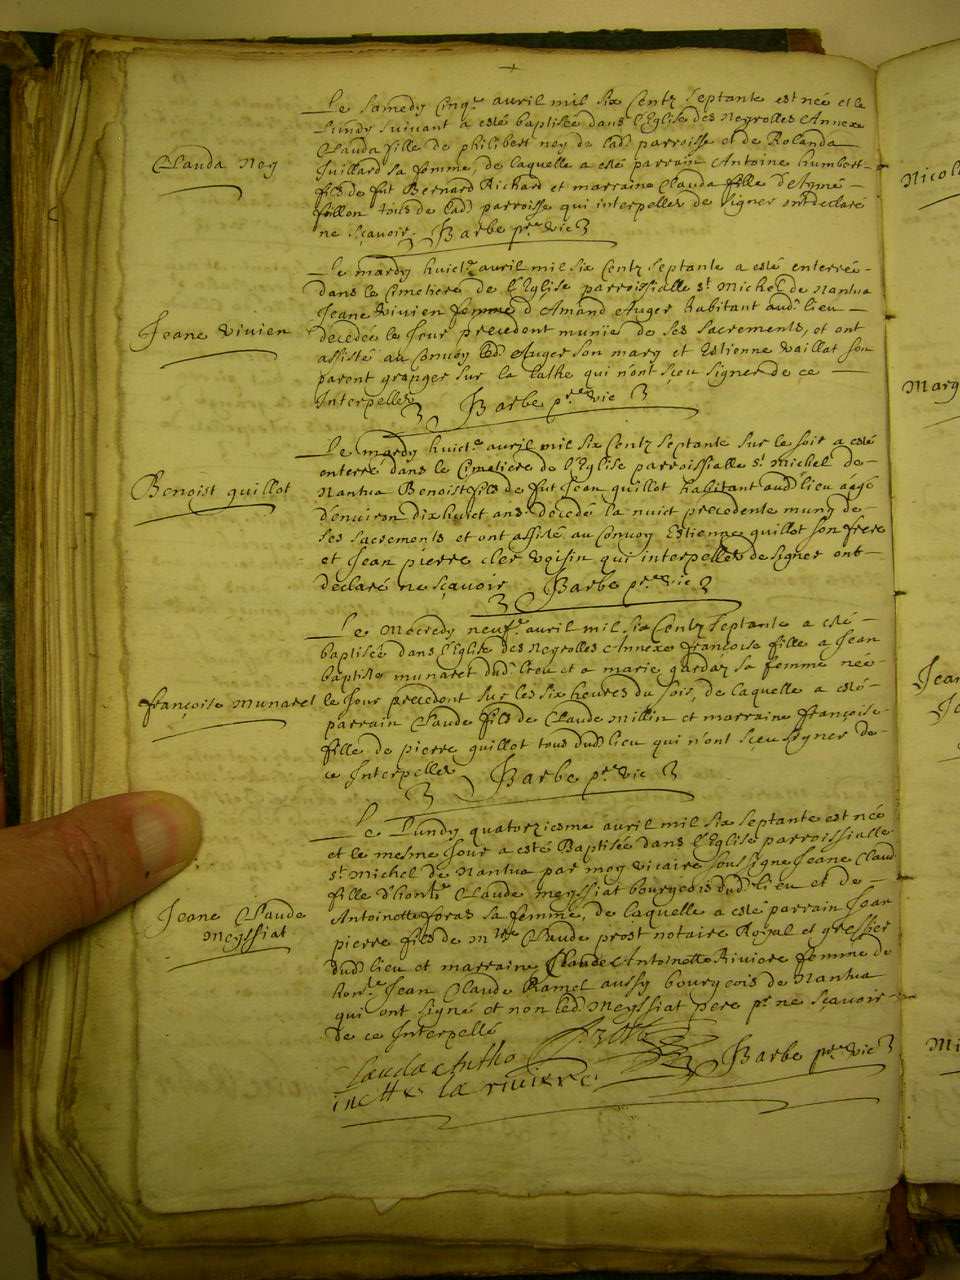 Clauda Ney
Le Samedy Cinq.e avril mil six Centz Septante est née et le
Lundy suivant a esté baptisée dans l'Eglise des Neyrolles Annexe
Clauda fille de philibert ney de lad. parroisse et de Rolanda
Juillard sa femme, de laquelle a esté parrain Antoine humbert
fils de fut Bernard Richard et marraine Clauda fille d'Aymé
fillon tous de lad. parroisse qui interpellés de signer ont declaré
ne sçavoir. Barbe p.re vic.
Jeane Vivien
Le mardy huict.e avril mil six Centz Septante a esté enterrée
dans le Cimetiere de l'Eglise parroissialle S.t Michel de Nantua
Jeane Vivien femme d'Amand Auger habitant aud. lieu
decedée le Jour precedent munie de ses sacrements, et ont
assisté au Convoy led. Auger son mary et Estienne vaillat son
parent granger sur la que n'ont sçeu signer de ce
Interpellés Barbe p.re vic
Benoist quillot
Le mardy huict.e avril mil six Centz Septante sur le soir a esté
enterré dans le Cimetiere de l'Eglise parroissialle S.t Michel de
Nantua Benoist fils de fut Jean quillot habitant aud. lieu aagé
d'environ dixhuict ans decedé la nuict precedente muny de
ses sacrements et ont assisté au Convoy Estienne quillot son frere
et Jean pierre cler voisin qui interpellés de signer ont
declaré ne sçavoir Barbe p.re vic
françoise Munaret
Le Mecredy neuf.e avril mil six Centz Septante a esté
baptisée dans l'Eglise des Neyrolles Annexe françoise fille a Jean
baptiste munaret dud. lieu et a marie gardaz sa femme née
le Jour precedent sur les six heures du soir, de laquelle a esté
parrain Claude fils de Claude Millin et marraine françoise
fille de pierre guillot tous dud. lieu qui n'ont sçeu signer de
ce Interpellés Barbe p.re vic
Jeane Claude
Meyssiat
Le Lundy quatorziesme avril mil six Septante est née
et le mesme Jour a esté Baptisée dans l'Eglise parroissialle
S.t Michel de Nantua par moy vicaire soussigné Jeane Claud
fille d'hon.ble Claude meyssiat bourgeois dud. lieu et de
Antoinette foras sa femme, de laquelle a esté parrain Jean
pierre fils de M.tre Claude prost notaire Royal et greffier
dud. lieu et marraine Claude Antoinette Riviere femme de
hon.ble Jean Claude Ramel aussy bourgeois de Nantua
qui ont signé et non led. Meyssiat pere p.r ne sçavoir
de ce Interpellé
Clauda Antho Prost Barbe p.re vic
inette la riviere